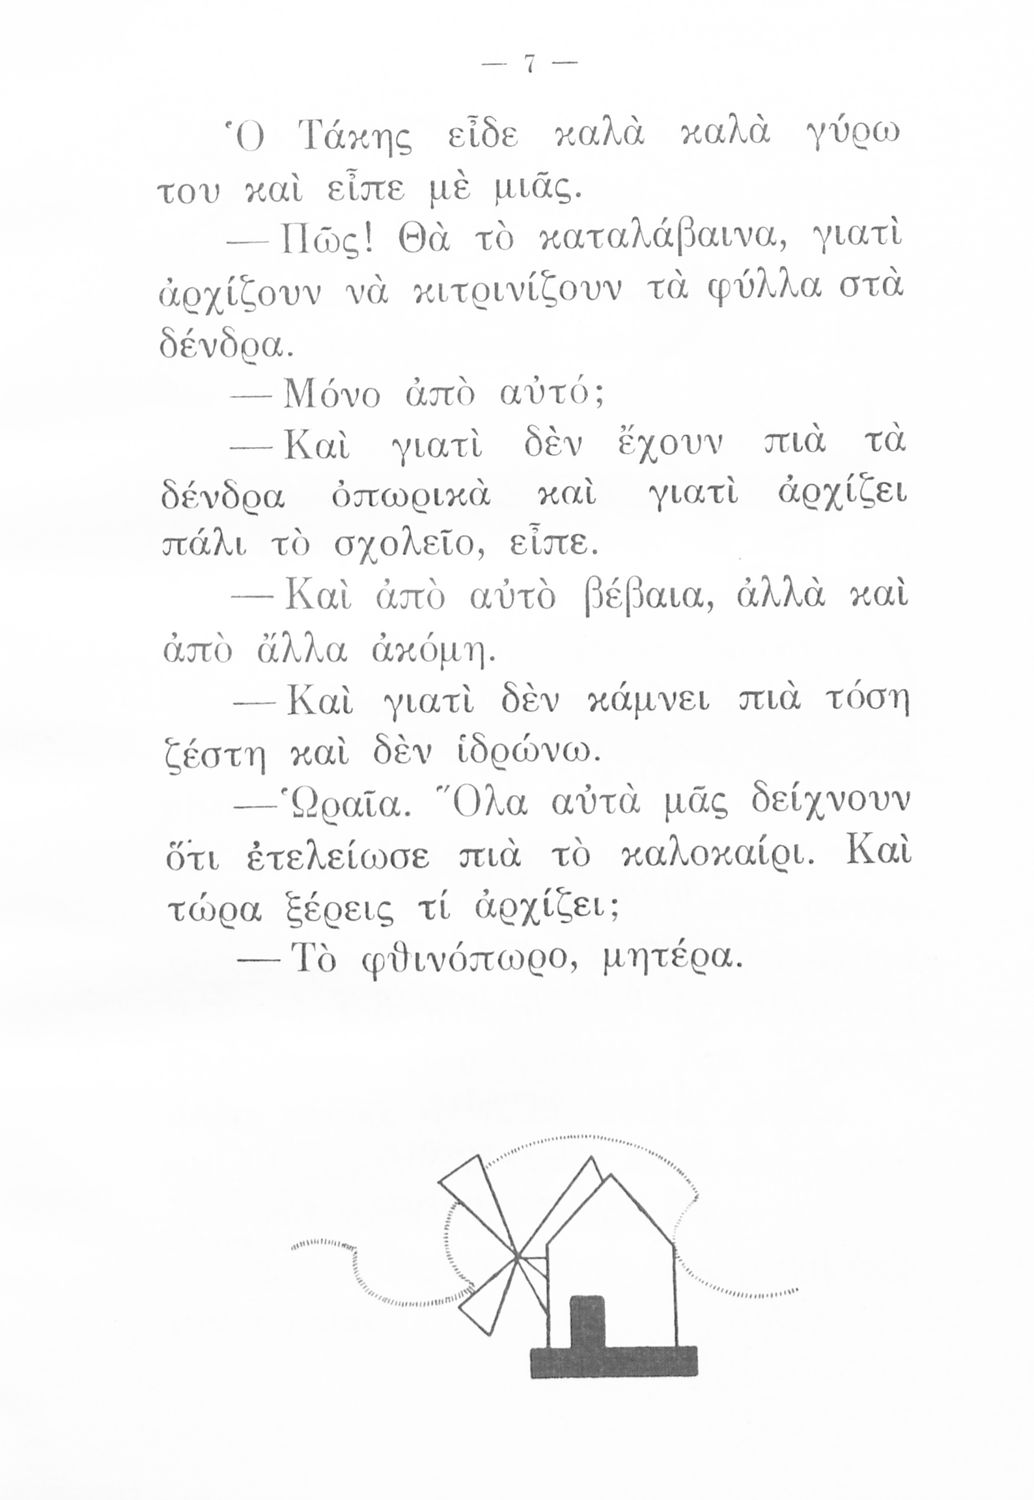 — 7 —
Ὁ Τάκης εἶδε καλὰ καλὰ γύρω
του καὶ εἶπε μὲ μιᾶς.
— Πῶς! Θὰ τὸ καταλάβαινα, γιατὶ
ἀρχίζουν νὰ κιτρινίζουν τὰ φύλλα στὰ
δένδρα.
— Μόνο ἀπὸ αὐτό;
— Καὶ γιατὶ δὲν ἔχουν πιὰ τὰ
δένδρα ὀπωρικὰ καὶ γιατὶ ἀρχίζει
πάλι τὸ σχολεῖο, εἶπε.
— Καὶ ἀπὸ αὐτὸ βέβαια, ἀλλὰ καὶ
ἀπὸ ἄλλα ἀκόμη.
— Καὶ γιατὶ δὲν κάμνει πιὰ τόση
ζέστη καὶ δὲν ἱδρώνω.
— Ὡραῖα. Ὅλα αὐτὰ μᾶς δείχνουν
ὅτι ἐτελείωσε πιὰ τὸ καλοκαίρι. Καὶ
τώρα ξέρεις τί ἀρχίζει;
— Τὸ φθινόπωρο, μητέρα.